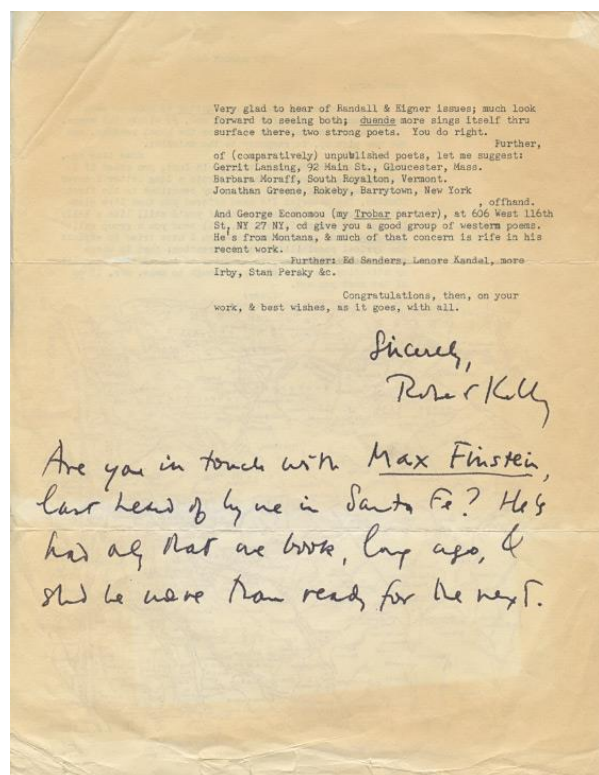 Very glad to hear of Randall & Eigner issues; much look
forward to seeing both; duende more sings itself thru
surface there, two strong poets. You do right.
Further,
of (comparatively) unpublished poets, let me suggest:
Gerrit Lansing, 92 Main St., Gloucester, Mass.
Barbara Moraff, South Royalton, Vermont.
Jonathan Greene, Rokeby, Barrytown, New York
, offhand.
And George Economou (my Trobar partner), at 606 West 116th
St, NY 27 NY, cd give you a good group of western poems.
He's from Montana, & much of that concern is rife in his
recent work.
Further: Ed Sanders, Lenore Kandel, more
Irby, Stan Persky &c.
Congratulations, then, on your
work, & best wishes, as it goes, with all.
Sincerely,
Robert Kelly
Are you in touch with Max Finstein,
last heard of by me in Santa Fe? He's
had only that one book, long ago, &
shd be more than ready for the next.